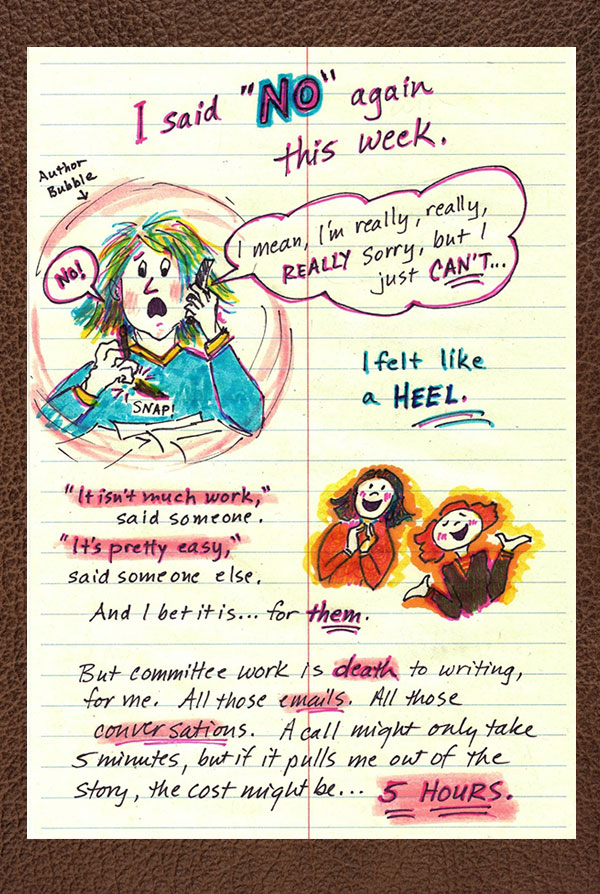 I said "NO" again
this week.
Author
Bubble
No!
I mean, I'm really, really,
REALLY sorry, but I
just CAN'T...
SNAP!
I felt like
a HEEL.
"It isn't much work,"
said someone.
"It's pretty easy,"
said someone else.
And I bet it is... for them.
But committee work is death to writing,
for me. All those emails. All those
conversations. A call might only take
5 minutes, but if it pulls me out of the
story, the cost might be... 5 HOURS.